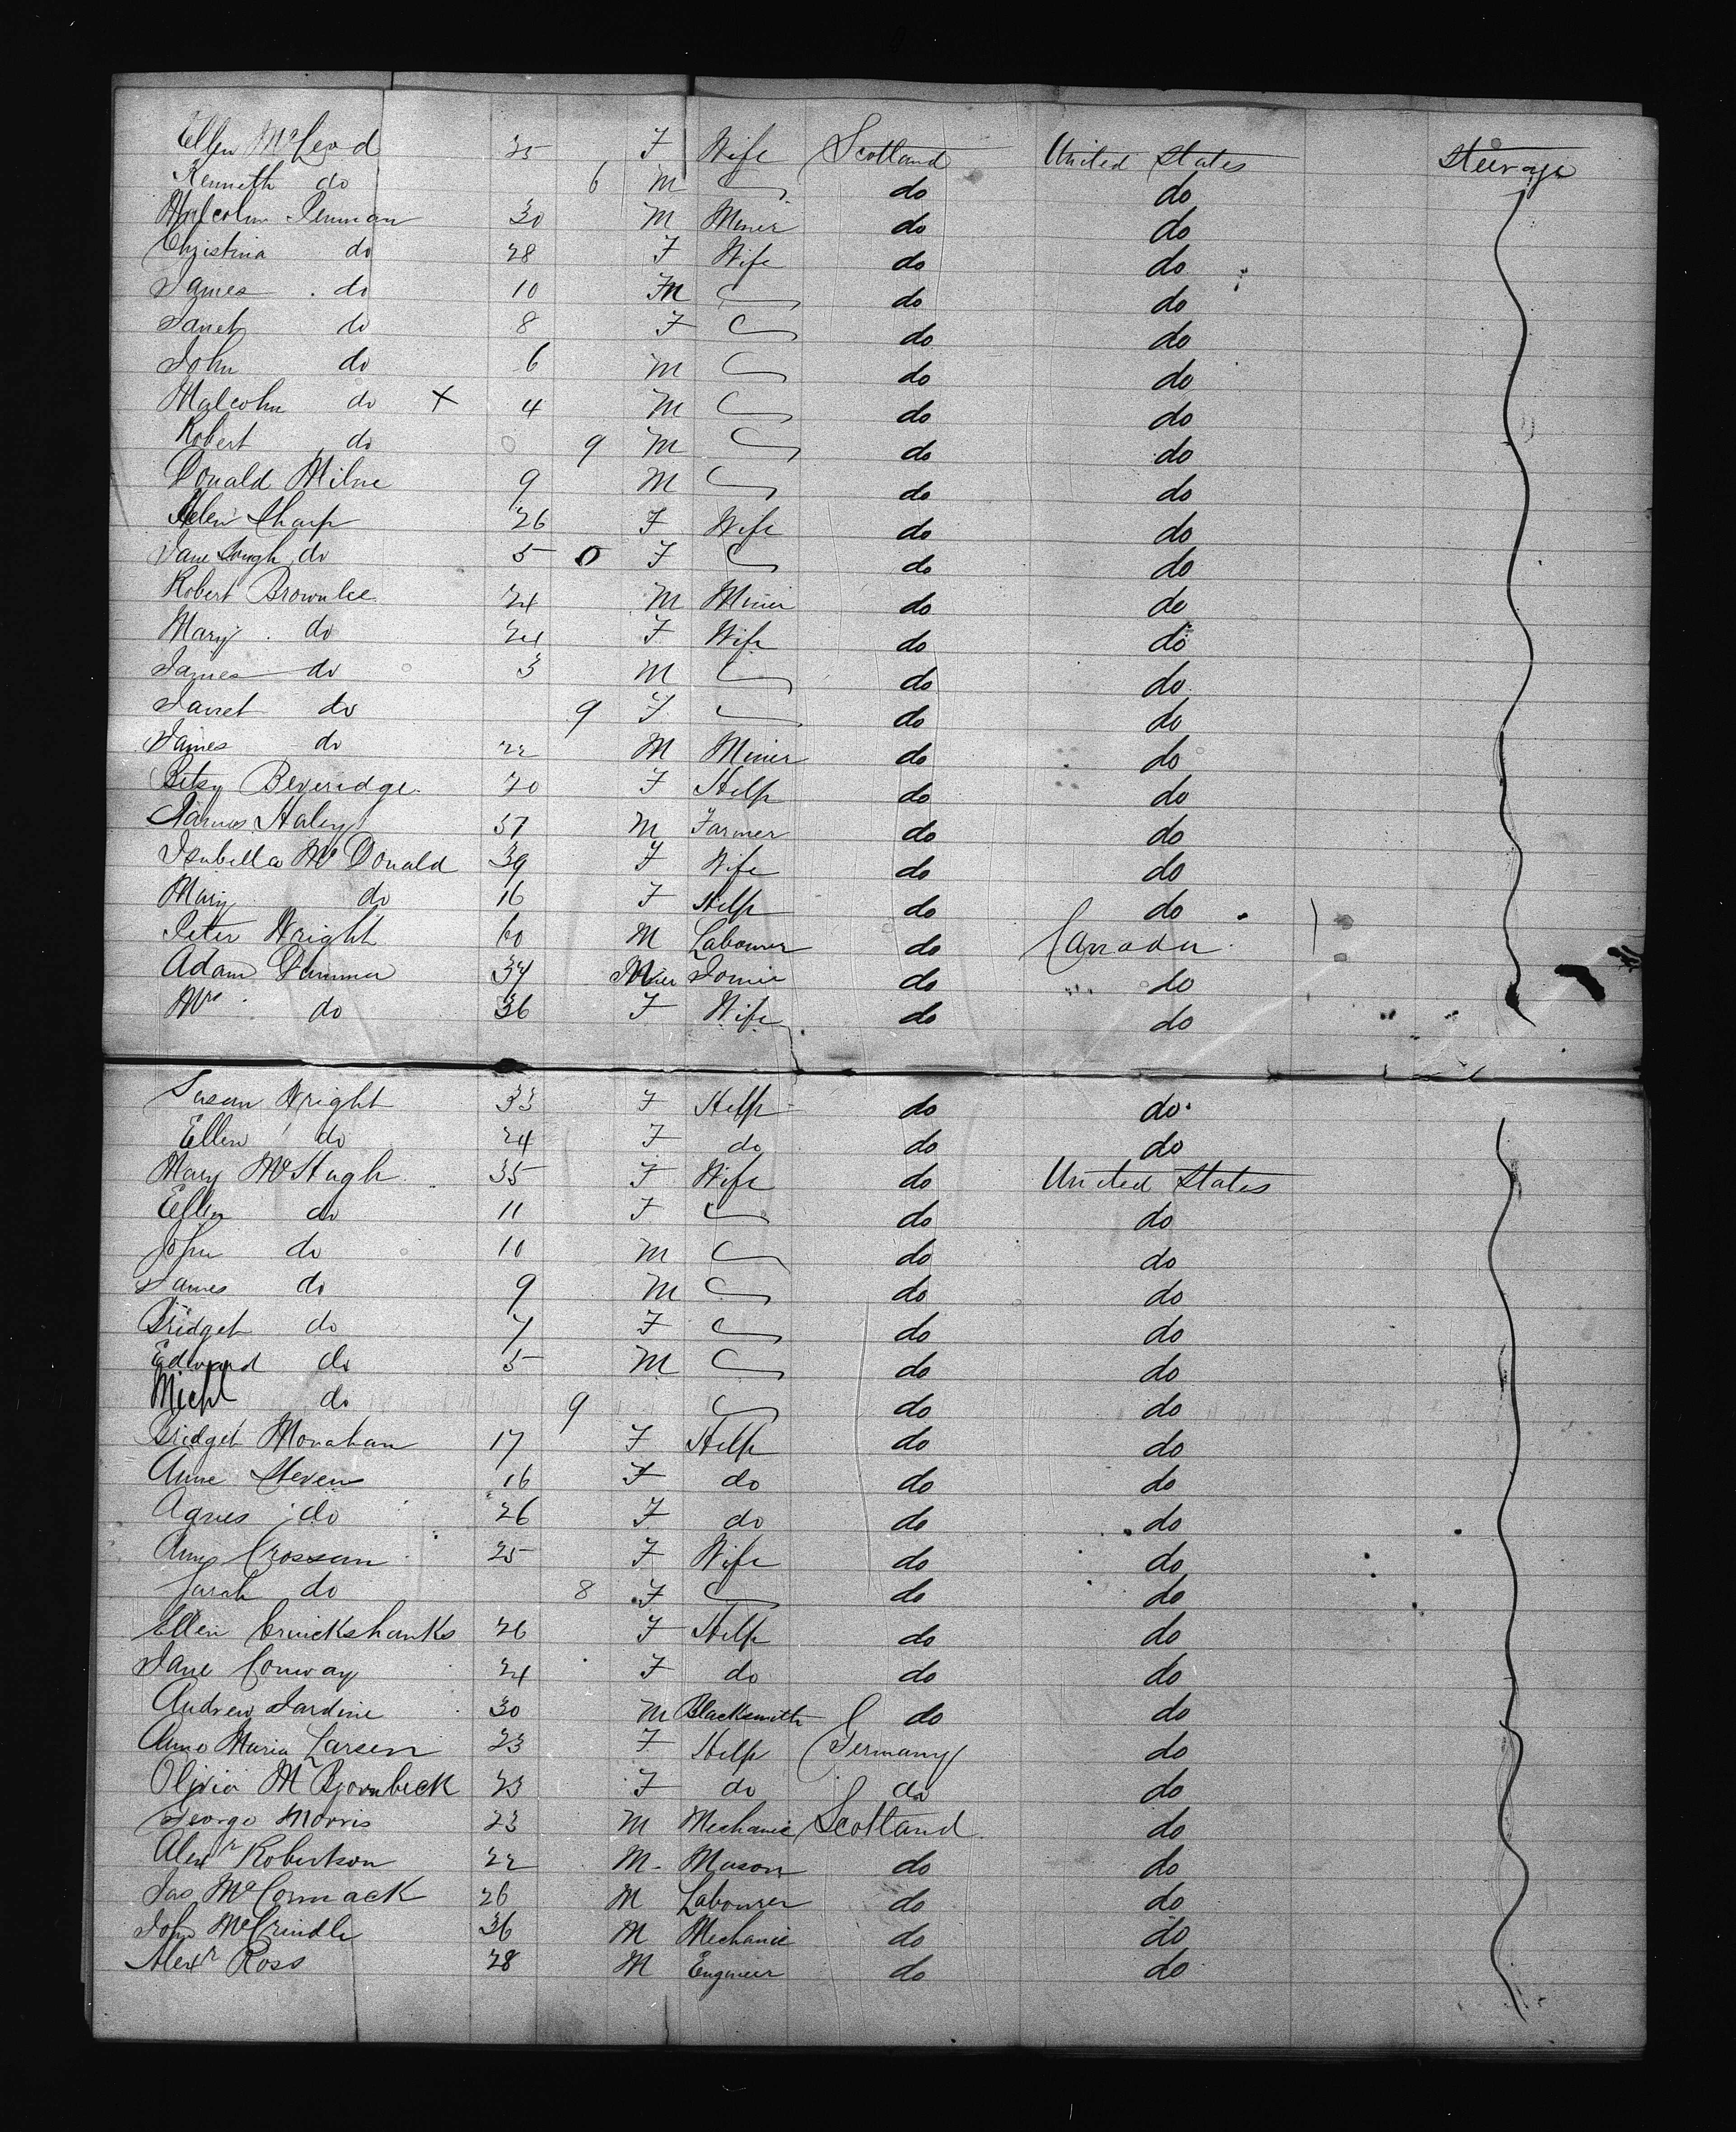 Ellen McLeod 25 F Wife Scotland United States Steerage
Kenneth do 6 M do do
Malcolm Penman 30 M Miner do do
Christina do 28 F Wife do do
James do 10 M do do
Janet do 8 F do do
John do 6 M do do
Malcolm do X 4 M do do
Robert do 9 M do do
Donald Milne 9 M do do
Helen Sharp 26 F Wife do do
Jane do 5 0 F do do
Robert Brownlee 24 M Miner do do
Mary do 24 F Wife do do
James do 3 M do do
Janet do 9 F do do
James do 22 M Miner do do
Betsy Beveridge 20 F Help do do
James Haley 37 M Farmer do do
Isabella McDonald 39 F Wife do do
Mary do 16 F Help do do
Peter Wright 60 M Labourer do Canada
Adam 34 M do do
Mrs do 36 F Wife do do
Susan Wright 33 F Help do do
Ellen do 24 F do do do
Mary McHugh 35 F Wife do United States
Ellen do 11 F do do
John do 10 M do do
James do 9 M do do
Bridget do 7 F do do
Edward do 5 M do do
Michl do 9 do do
Bridget Monahan 17 F Help do do
Anne Steven 16 F do do do
Agnes do 26 F do do do
Crossan 25 F Wife do do
Sarah do 8 F do do
Ellen Cruickshanks 26 F Help do do
Jane Conway 24 F do do do
Andrew Jardine 30 M Blacksmith do do
Anna Maria Larsen 23 F Help Germany do
Olivia M Bjornbeck 23 F do do do
George Morris 23 M Mechanic Scotland do
Alexr Robertson 22 M Mason do do
Jas McCormack 26 M Labourer do do
John McCrindle 36 M Mechanic do do
Alexr Ross 28 M Engineer do do